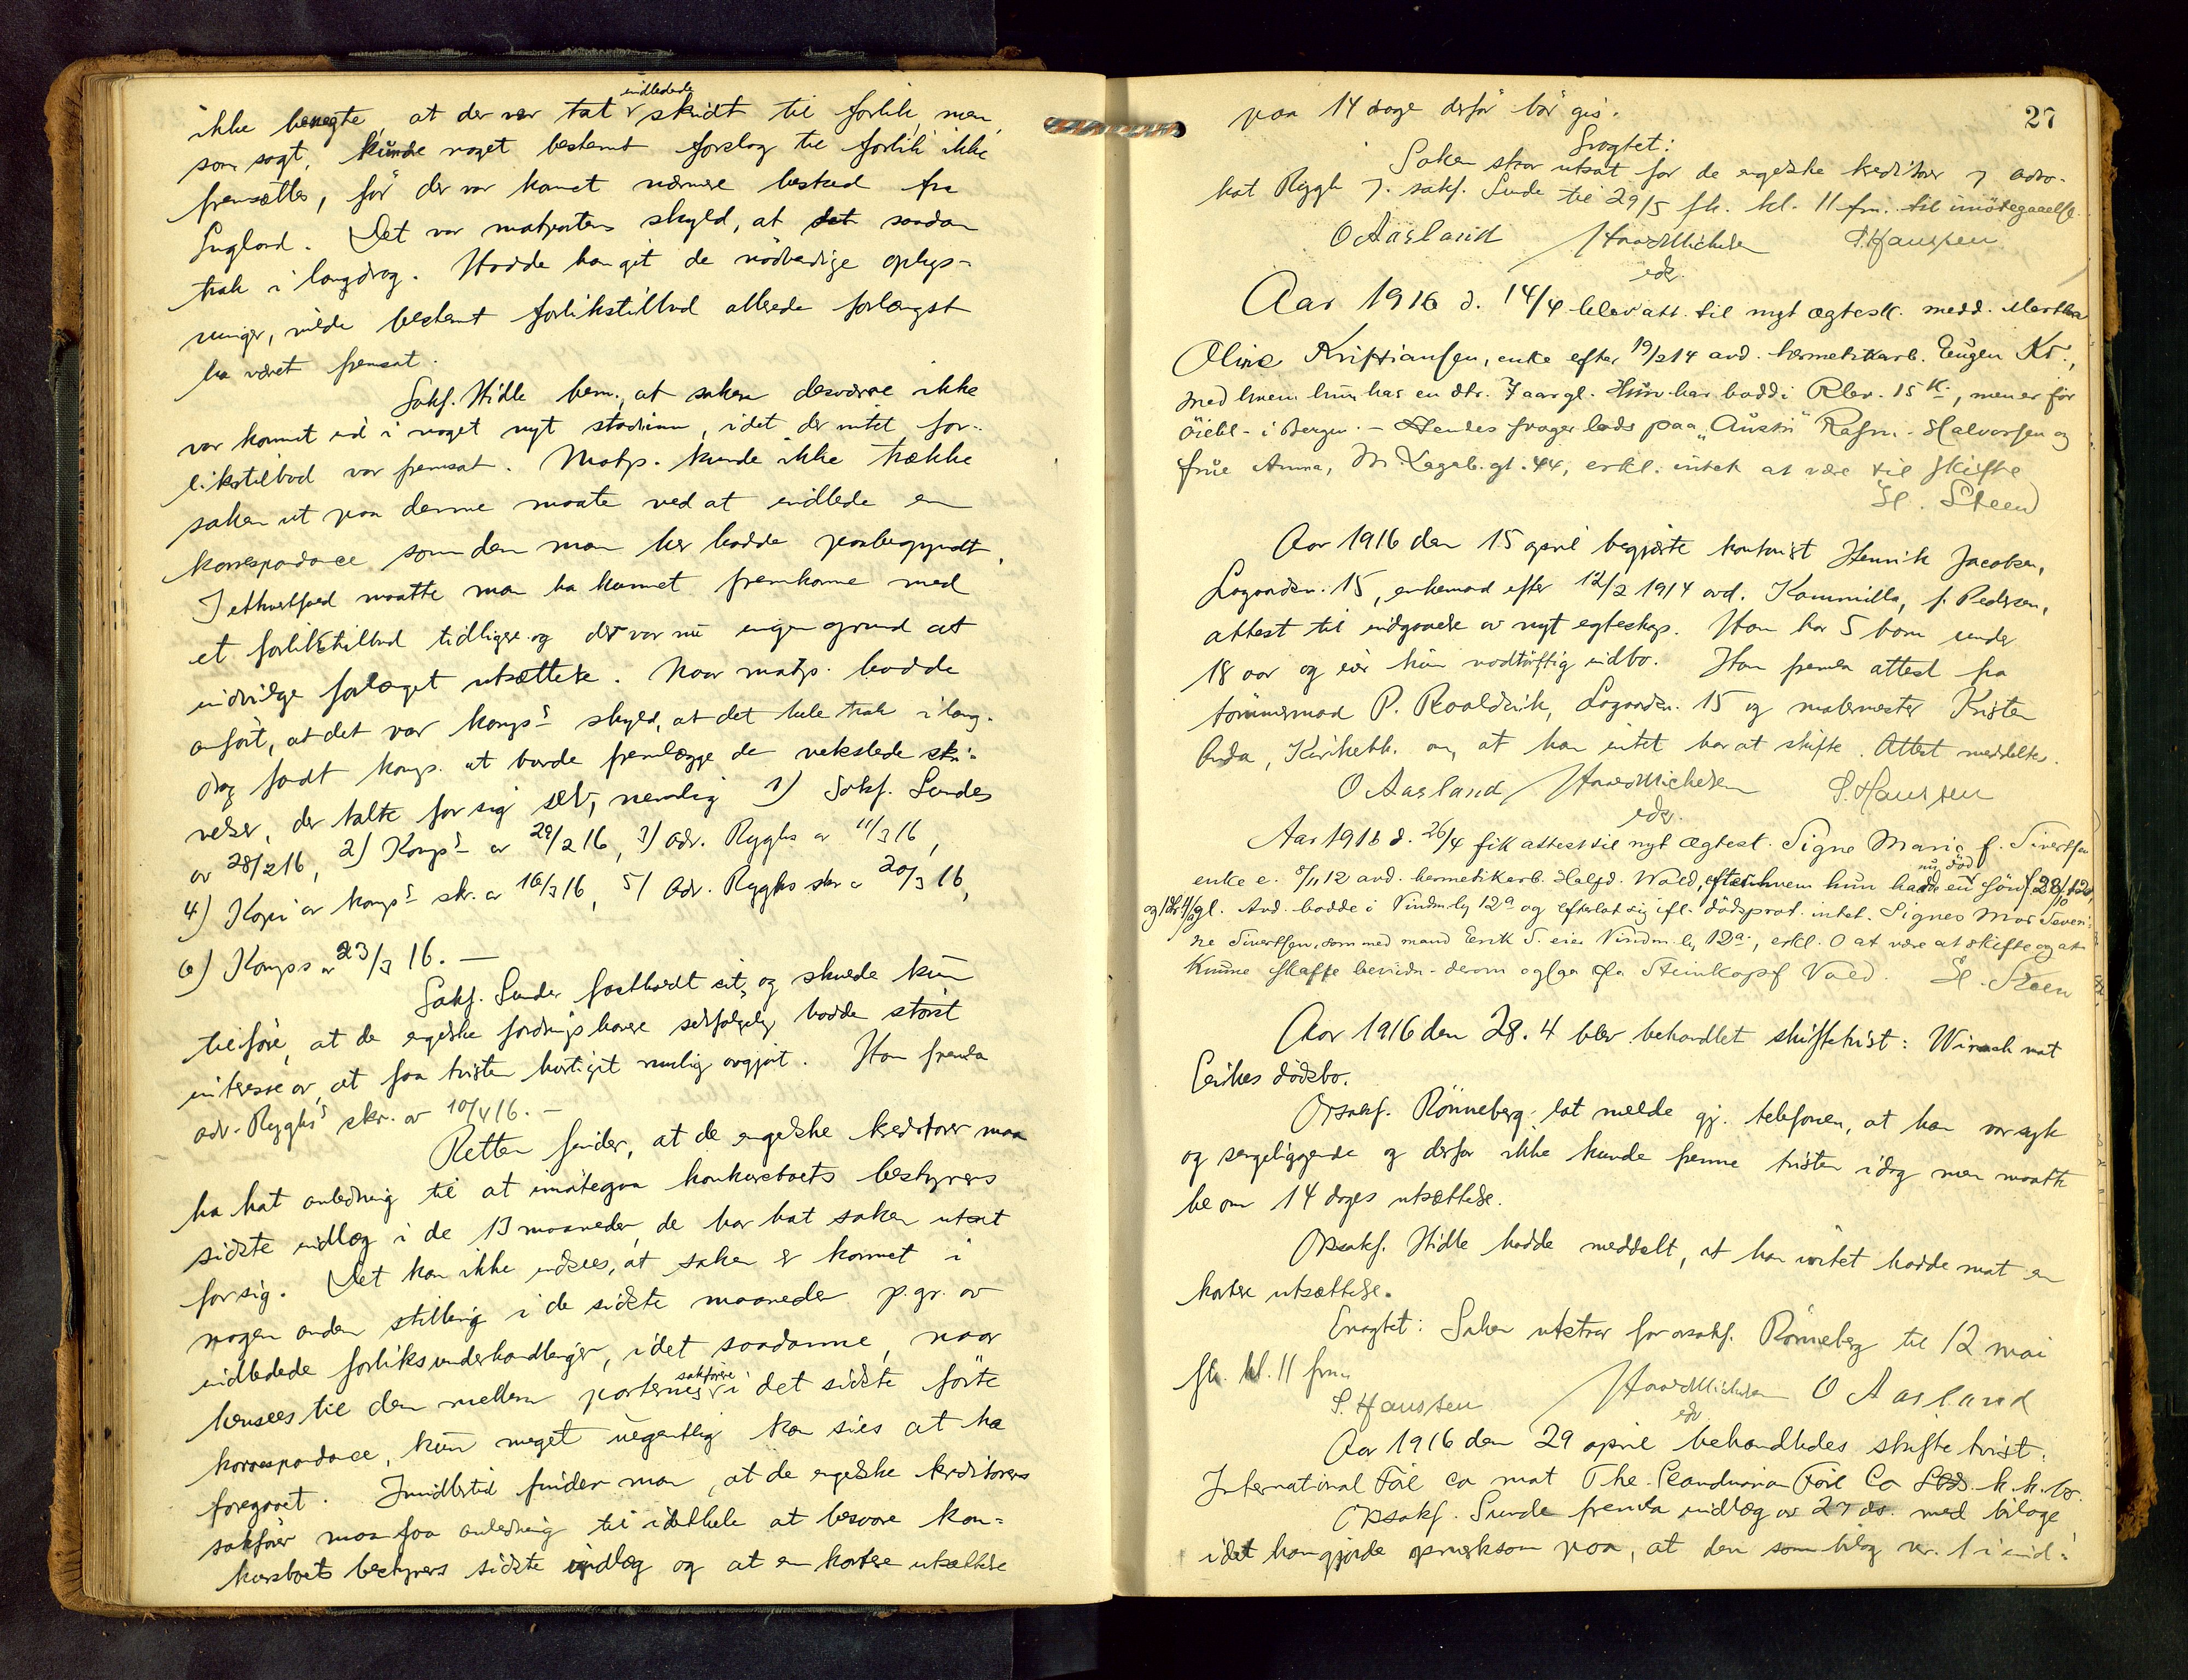 ikke benegte, at der var tat indledede skridt til forlik, men,
som sagt, kunde noget bestemt forslag til forlik ikke
fremsættes, før der var kommet nærmere besked fra
England. Det var motpartens skyld, at det saadan
trak i langdrag. Hadde han git de nødvendige oplys-
ninger, vilde bestemt forlikstilbud allerede forlængst
ha været fremsat.
Sakf. Hidle bem., at saken desværre ikke
var kommet ind i noget nyt stadium, idet der intet for-
likstilbud var fremsat. Motp. kunde ikke trække
saken ut paa denne maate ved at indlede en
korrespondance som den man her hadde paabegyndt.
I ethvertfald maatte man ha kunnet fremkomme med
et forlikstilbud tidligere og der var nu ingen grund at
indvilge forlænget utsættelse. Naar motp. hadde
anført, at det var konkps skyld, at det hele trak i lang-
drag fandt konkp. at burde fremlægge de vekslede skri-
velser, der talte for sig selv, nemlig 1) Sakf. Sundes
av 28/2 16, 2) Konkps av 29/2 16, 3) adv. Ryghs av 11/3 16,
4) Kopi av konkps skr. av 16/3 16, 5) Adv. Ryghs skr av 20/3 16,
6) Konkps av 23/3 16. —
Sakf. Sunde fastholdt sit, og skulde kun
tilføie, at de engelske fordringshavere selvfølgelig hadde størst
interesse av, at faa tvisten hurtigst mulig avgjort. Han fremla
adv. Ryghs skr. av 10/4 16. —
Retten finder, at de engelske kreditorer maa
ha hat anledning til at imøtegaa konkursboets bestyrers
sidste indlæg i de 13 maaneder, de har hat saken utsat
for sig. Det kan ikke indsees, at saken er kommet i
nogen anden stilling i de sidste maaneder p.gr. av
indledede forliksunderhandlinger, idet saadanne, naar
hensees til den mellem parternes sakførere i det sidste førte
korrespondance, kun meget uegentlig kan sies at ha
foregaaet. Imidlertid finder man, at de engelske kreditorers
sakfører maa faa anledning til idethele at besvare kon-
kursboets bestyrers sidste indlæg og at en kortere utsættelse
27
paa 14 dage derfor bør gis.
Eragtet:
Saken staar utsat for de engelske kreditorer v adv-
kat Rygh v. sakf. Sunde til 29/5 fk. kl. 11 fm. til imøtegaaelse.
O Aasland Haavd Michelsen S. Hanssen
edv.
Aar 1916 d. 14/4 blev att. til nyt ægtesk. medd. Martha
Oline Kristiansen, enke efter 19/2 14 avd. hermetikarb. Eugen Kr.,
med hvem hun har en dtr. 7 aar gl. Hun har bodd i Rlev. 15 k., men er for
öiebl. i Bergen. — Hendes svoger lods paa "Austri" Rasm. Halvorsen og
frue Anna, M. Lagab. gt. 44, erkl. intet at være til skifte
H. Steen
Aar 1916 den 15 april begjærte kontorist Henrik Jacobsen,
Lagaardsv. 15, enkemand efter 12/2 1914 avd. Kammilla, f. Pedersen,
attest til indgaaelse av nyt egteskap. Han har 5 barn under
18 aar og eier kun nødtørftig indbo. Han fremla attest fra
tømmermand P. Roaldsvik, Lagaardsv. 15 og malermester Kristen
Anda, Kirkebk. om, at han intet har at skifte. Attest meddeltes.
O Aasland Haavd Michelsen S. Hanssen
edv.
Aar 1916 d. 26/4 fik attest til nyt ægtesk. Signe Marie f. Sivertsen
enke e. 8/11 12 avd. hermetikarb. Halfd. Wald, efter hvem hun hadde en nu död sön f. 28/10 12,
og 1 dtr. 4 a/gl. Avd. bodde i Vindm.bg 12a og efterlot sig ifl. dödsprot. intet. Signes mor Severi-
ne Sivertsen, som med mand Erik S. eier Vindm.bg 12a, erkl. 0 at være at skifte og at
kunne skaffe bevidn. derom ogsaa fra Steinkopf Vald. H. Steen
Aar 1916 den 28. 4 blev behandlet skiftetvist: Wirach mot
Eerikes dødsbo.
Orsakf. Rönneberg lot melde gj. telefonen, at han var syk
og sengeliggende og derfor ikke kunde fremme tvisten idag men maatte
be om 14 dages utsættelse.
Orsakf. Hidle hadde meddelt, at han intet hadde mot en
kortere utsættelse.
Eragtet: Saken utstaar for orsakf. Rönneberg til 12 mai
fk. kl. 11 fm.
S. Hanssen Haavd Michelsen O Aasland
edv
Aar 1916 den 29 april behandledes skiftetvist:
International Foil Co mot The Scandinavian Foil Co Ltds. k.k.bo.
Orsakf. Sunde fremla indlæg av 27 ds. med bilage
idet han gjorde opmerksom paa, at den som bilag nr. 1 i ind-